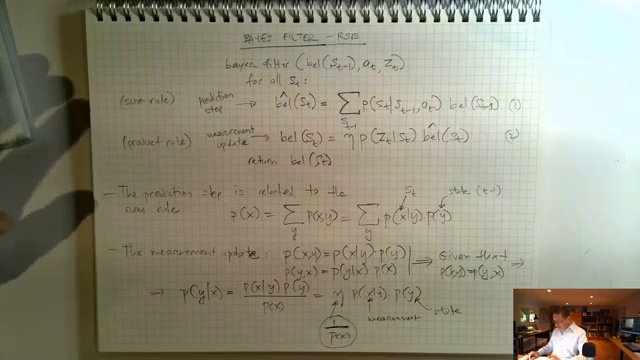 BAYES FILTER - RSE
bayes filter (bel(S_{t-1}), a_t, Z_t)
for all S_t:
(sum rule) prediction step → b̂el(S_t) = Σ_{S_{t-1}} p(S_t|S_{t-1}, a_t) bel(S_{t-1}) (1)
(product rule) measurement update → bel(S_t) = η p(Z_t|S_t) b̂el(S_t) (2)
return bel(S_t)
- The prediction step is related to the S_t state (t-1)
sum rule p(x) = Σ_y p(x,y) = Σ_y p(x|y) p(y)
- The measurement update: p(x,y) = p(x|y) · p(y) ⟹ Given that ⟹
p(y,x) = p(y|x) p(x) p(x,y) = p(y,x)
⟹ p(y|x) = p(x|y) p(y) / p(x) = η p(x|y) · p(y)
1/p(x) measurement state